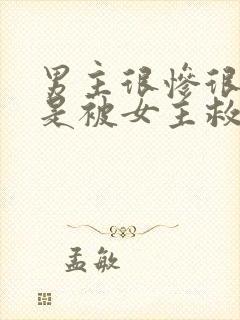 男主很惨很
是被女主救
孟敏